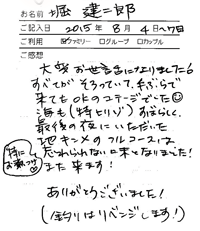 お名前 堀 建二郎
ご記入日 2015年 8月 4日～7日
ご利用 ☑ファミリー ログループ ロカップル
ご感想
大変お世話になりました。
すべてがそろっていて、手ぶらで
来てもOKのコテージでした☺
海も(特にヒリゾ)すばらしく、
最後の夜にいただいた
地キンメのフルコースは
忘れられない日となりました!
また来ます!
特にお魚っ
ありがとうございました!
(釣りはリベンジします!)